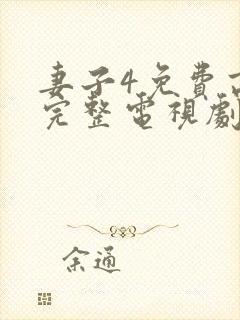 妻子4免費
完整電視劇
余通